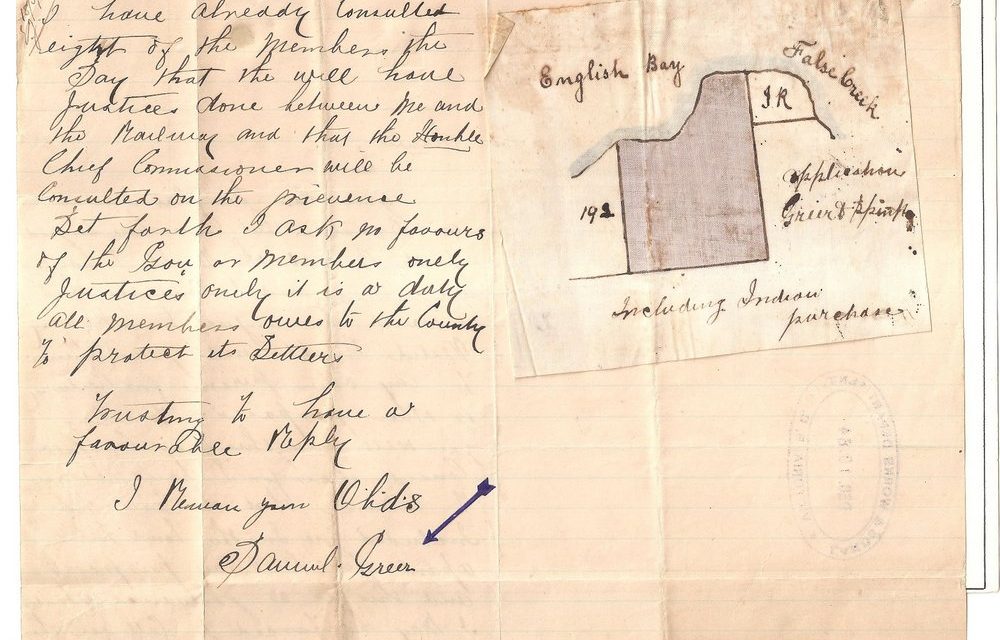 I have already Consulted
eight of the Members the
Say that the will have
Justices done between me and
the Railway and that the Honble
Chief Commasioner will be
Consulted on the grievence
Set forth I ask no favours
of the Gov or members onely
Justices onely it is a duty
all members owes to the County
to protect its Settlers
Trusting to have a
favourable Reply
I Remain your Obds
Samuel Greer
English Bay
False Creek
I R
192
application
Greer &
Including Indian
purchase